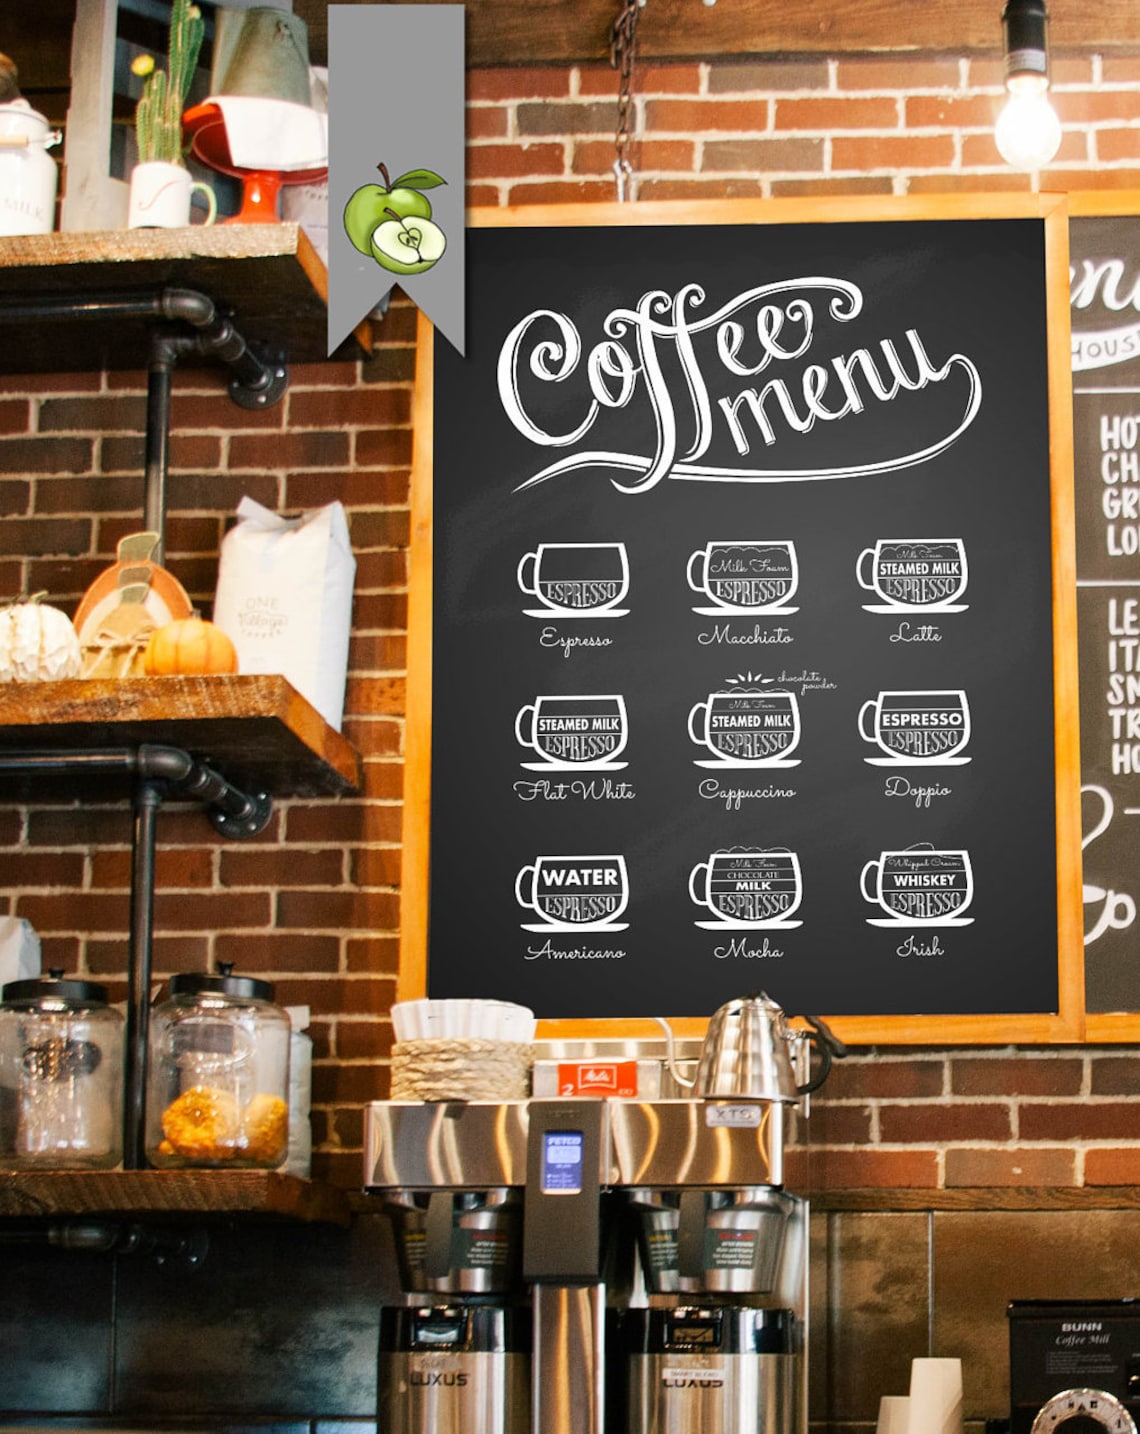 MILK
Coffee
menu
HOUS
ESPRESSO
Espresso
Milk Foam
ESPRESSO
Macchiato
Milk Foam
STEAMED MILK
ESPRESSO
Latte
STEAMED MILK
ESPRESSO
Flat White
chocolate
powder
Milk Foam
STEAMED MILK
ESPRESSO
Cappuccino
ESPRESSO
ESPRESSO
Doppio
WATER
ESPRESSO
Americano
Milk Foam
CHOCOLATE
MILK
ESPRESSO
Mocha
Whipped Cream
WHISKEY
ESPRESSO
Irish
HO
CH
GR
LO
LE
ITA
SM
TR
HO
ONE
Village
COFFEE
2
Melitta
XTS
FETCO
LUXUS
LUXUS
BUNN
Coffee Mill